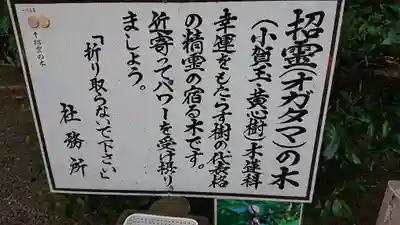 招霊(オガタマ)の木
(小賀玉・黄心樹)木蓮科
幸運をもたらす樹の代表格
の精霊の宿る木です。
近寄ってパワーを受け採り
ましょう。
「折り取らないで下さい」
社務所
招霊の木